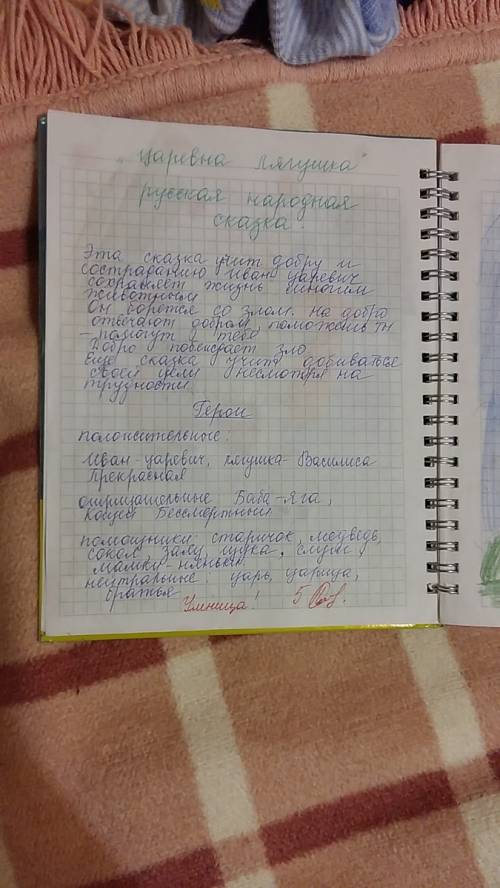 „Царевна лягушка"
русская народная
сказка.
Эта сказка учит добру и
состраданию Иван царевич
сохраняет жизнь многим
животным
Он борется со злом. на добро
отвечают добром, поможешь ты
– помогут и тебе
Добро побеждает зло
Еще сказка учит добиваться
своей цели несмотря на
трудности
Герои
положительные:
Иван-царевич, лягушка-Василиса
Прекрасная
отрицательные Баба-яга,
Кощей Бессмертный
помощники: старичок, медведь,
сокол, заяц, щука, слуги
мамки-няньки
нейтральные: царь, царица,
братья
Умница! 5